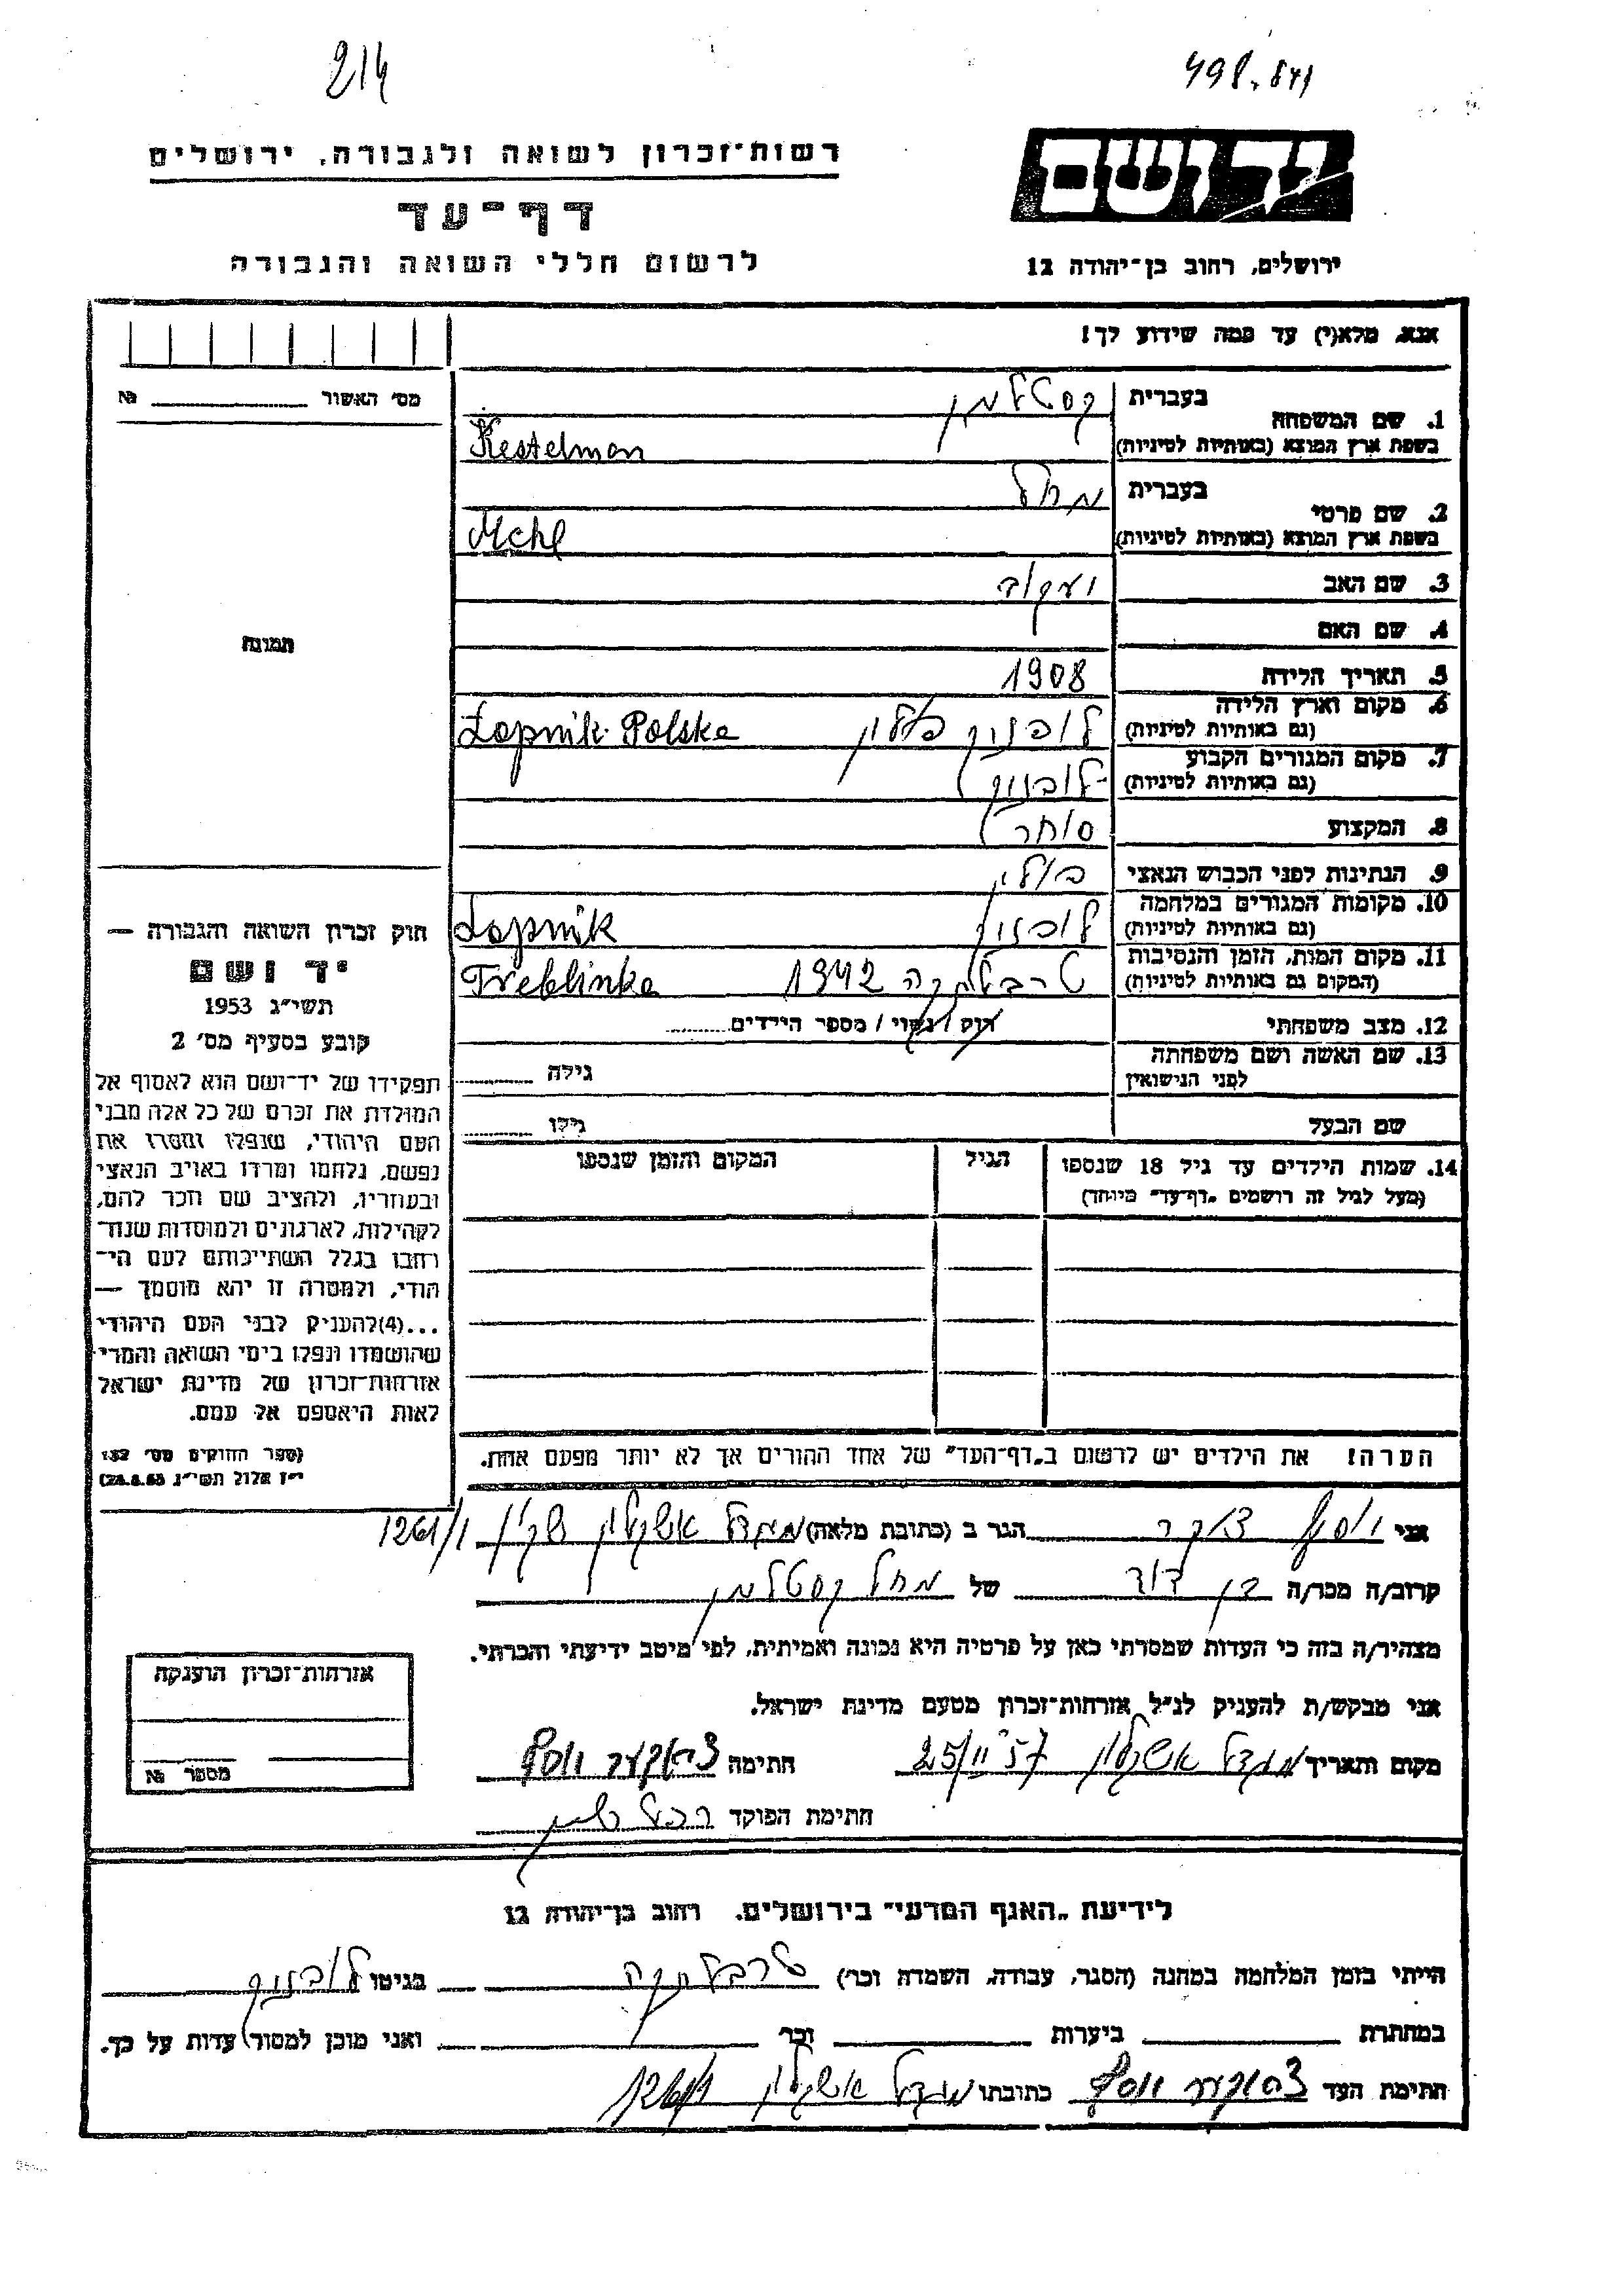 214
498.841
יד ושם
רשות־זכרון לשואה ולגבורה, ירושלים
דף־עד
לרשום חללי השואה והגבורה
ירושלים, רחוב בן־יהודה 12
אנא, מלא(י) עד כמה שידוע לך!
מס' האשור № 
1. שם המשפחה
בעברית קסטלמן
בשפת ארץ המוצא (באותיות לטיניות) Kestelman
2. שם פרטי
בעברית מחל
בשפת ארץ המוצא (באותיות לטיניות) Mchl
3. שם האב יעקוב
4. שם האם
5. תאריך הלידה 1908
6. מקום וארץ הלידה
(גם באותיות לטיניות) לופניק פולין Łopnik Polska
7. מקום המגורים הקבוע
(גם באותיות לטיניות) לופניק
8. המקצוע סוחר
9. הנתינות לפני הכבוש הנאצי פולין
10. מקומות המגורים במלחמה
(גם באותיות לטיניות) לופניק Łopnik
11. מקום המות, הזמן והנסיבות
(המקום גם באותיות לטיניות) טרבלינקה 1942 Treblinka
12. מצב משפחתי רוק / נשוי / מספר הילדים
13. שם האשה ושם משפחתה
לפני הנישואין גילה
שם הבעל גילו
14. שמות הילדים עד גיל 18 שנספו
(מעל לגיל זה רושמים „דף־עד” מיוחד)
הגיל
המקום והזמן שנספו
הערה! את הילדים יש לרשום ב„דף־העד” של אחד ההורים אך לא יותר מפעם אחת.
תמונה
חוק זכרון השואה והגבורה —
יד ושם
תשי״ג 1953
קובע בסעיף מס' 2
תפקידו של יד־ושם הוא לאסוף אל
המולדת את זכרם של כל אלה מבני
העם היהודי, שנפלו ומסרו את
נפשם, נלחמו ומרדו באויב הנאצי
ובעוזריו, ולהציב שם וזכר להם,
לקהילות, לארגונים ולמוסדות שנח־
רבו בגלל השתייכותם לעם הי־
הודי, ולמטרה זו יהא מוסמך —
...(4) להעניק לבני העם היהודי
שהושמדו ונפלו בימי השואה והמרי
אזרחות־זכרון של מדינת ישראל
לאות היאספם אל עמם.
(ספר החוקים מס' 132
י״ז אלול תשי״ג 28.8.53)
אני יוסף הגר ב (כתובת מלאה) מגדל אשקלון שיכון 1261/1
קרוב/ה מכר/ה בן דוד של מחל קסטלמן
מצהיר/ה בזה כי העדות שמסרתי כאן על פרטיה היא נכונה ואמיתית, לפי מיטב ידיעתי והכרתי.
אני מבקש/ת להעניק לנ״ל אזרחות־זכרון מטעם מדינת ישראל.
מקום ותאריך מגדל אשקלון 25/II 57 חתימה יוסף
חתימת הפוקד רחל
אזרחות־זכרון הוענקה
מספר №
לידיעת „האגף המדעי” בירושלים, רחוב בן־יהודה 12
הייתי בזמן המלחמה במחנה (הסגר, עבודה, השמדה וכו') טרבלינקה בגיטו לופניק
במחתרת ביערות וכו' ואני מוכן למסור עדות על כך.
חתימת העד יוסף כתובתו מגדל אשקלון 1261/1